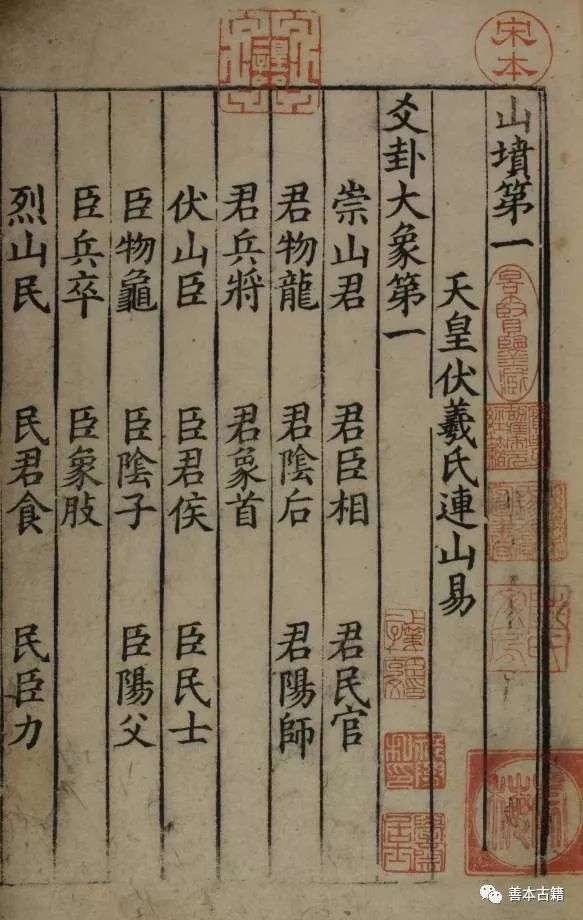 山墳第一
天皇伏羲氏連山易
爻卦大象第一
崇山君 君臣相 君民官
君物龍 君陰后 君陽師
君兵將 君象首
伏山臣 臣君侯 臣民士
臣物龜 臣陰子 臣陽父
臣兵卒 臣象股
烈山民 民君食 民臣力
宋本
善本古籍